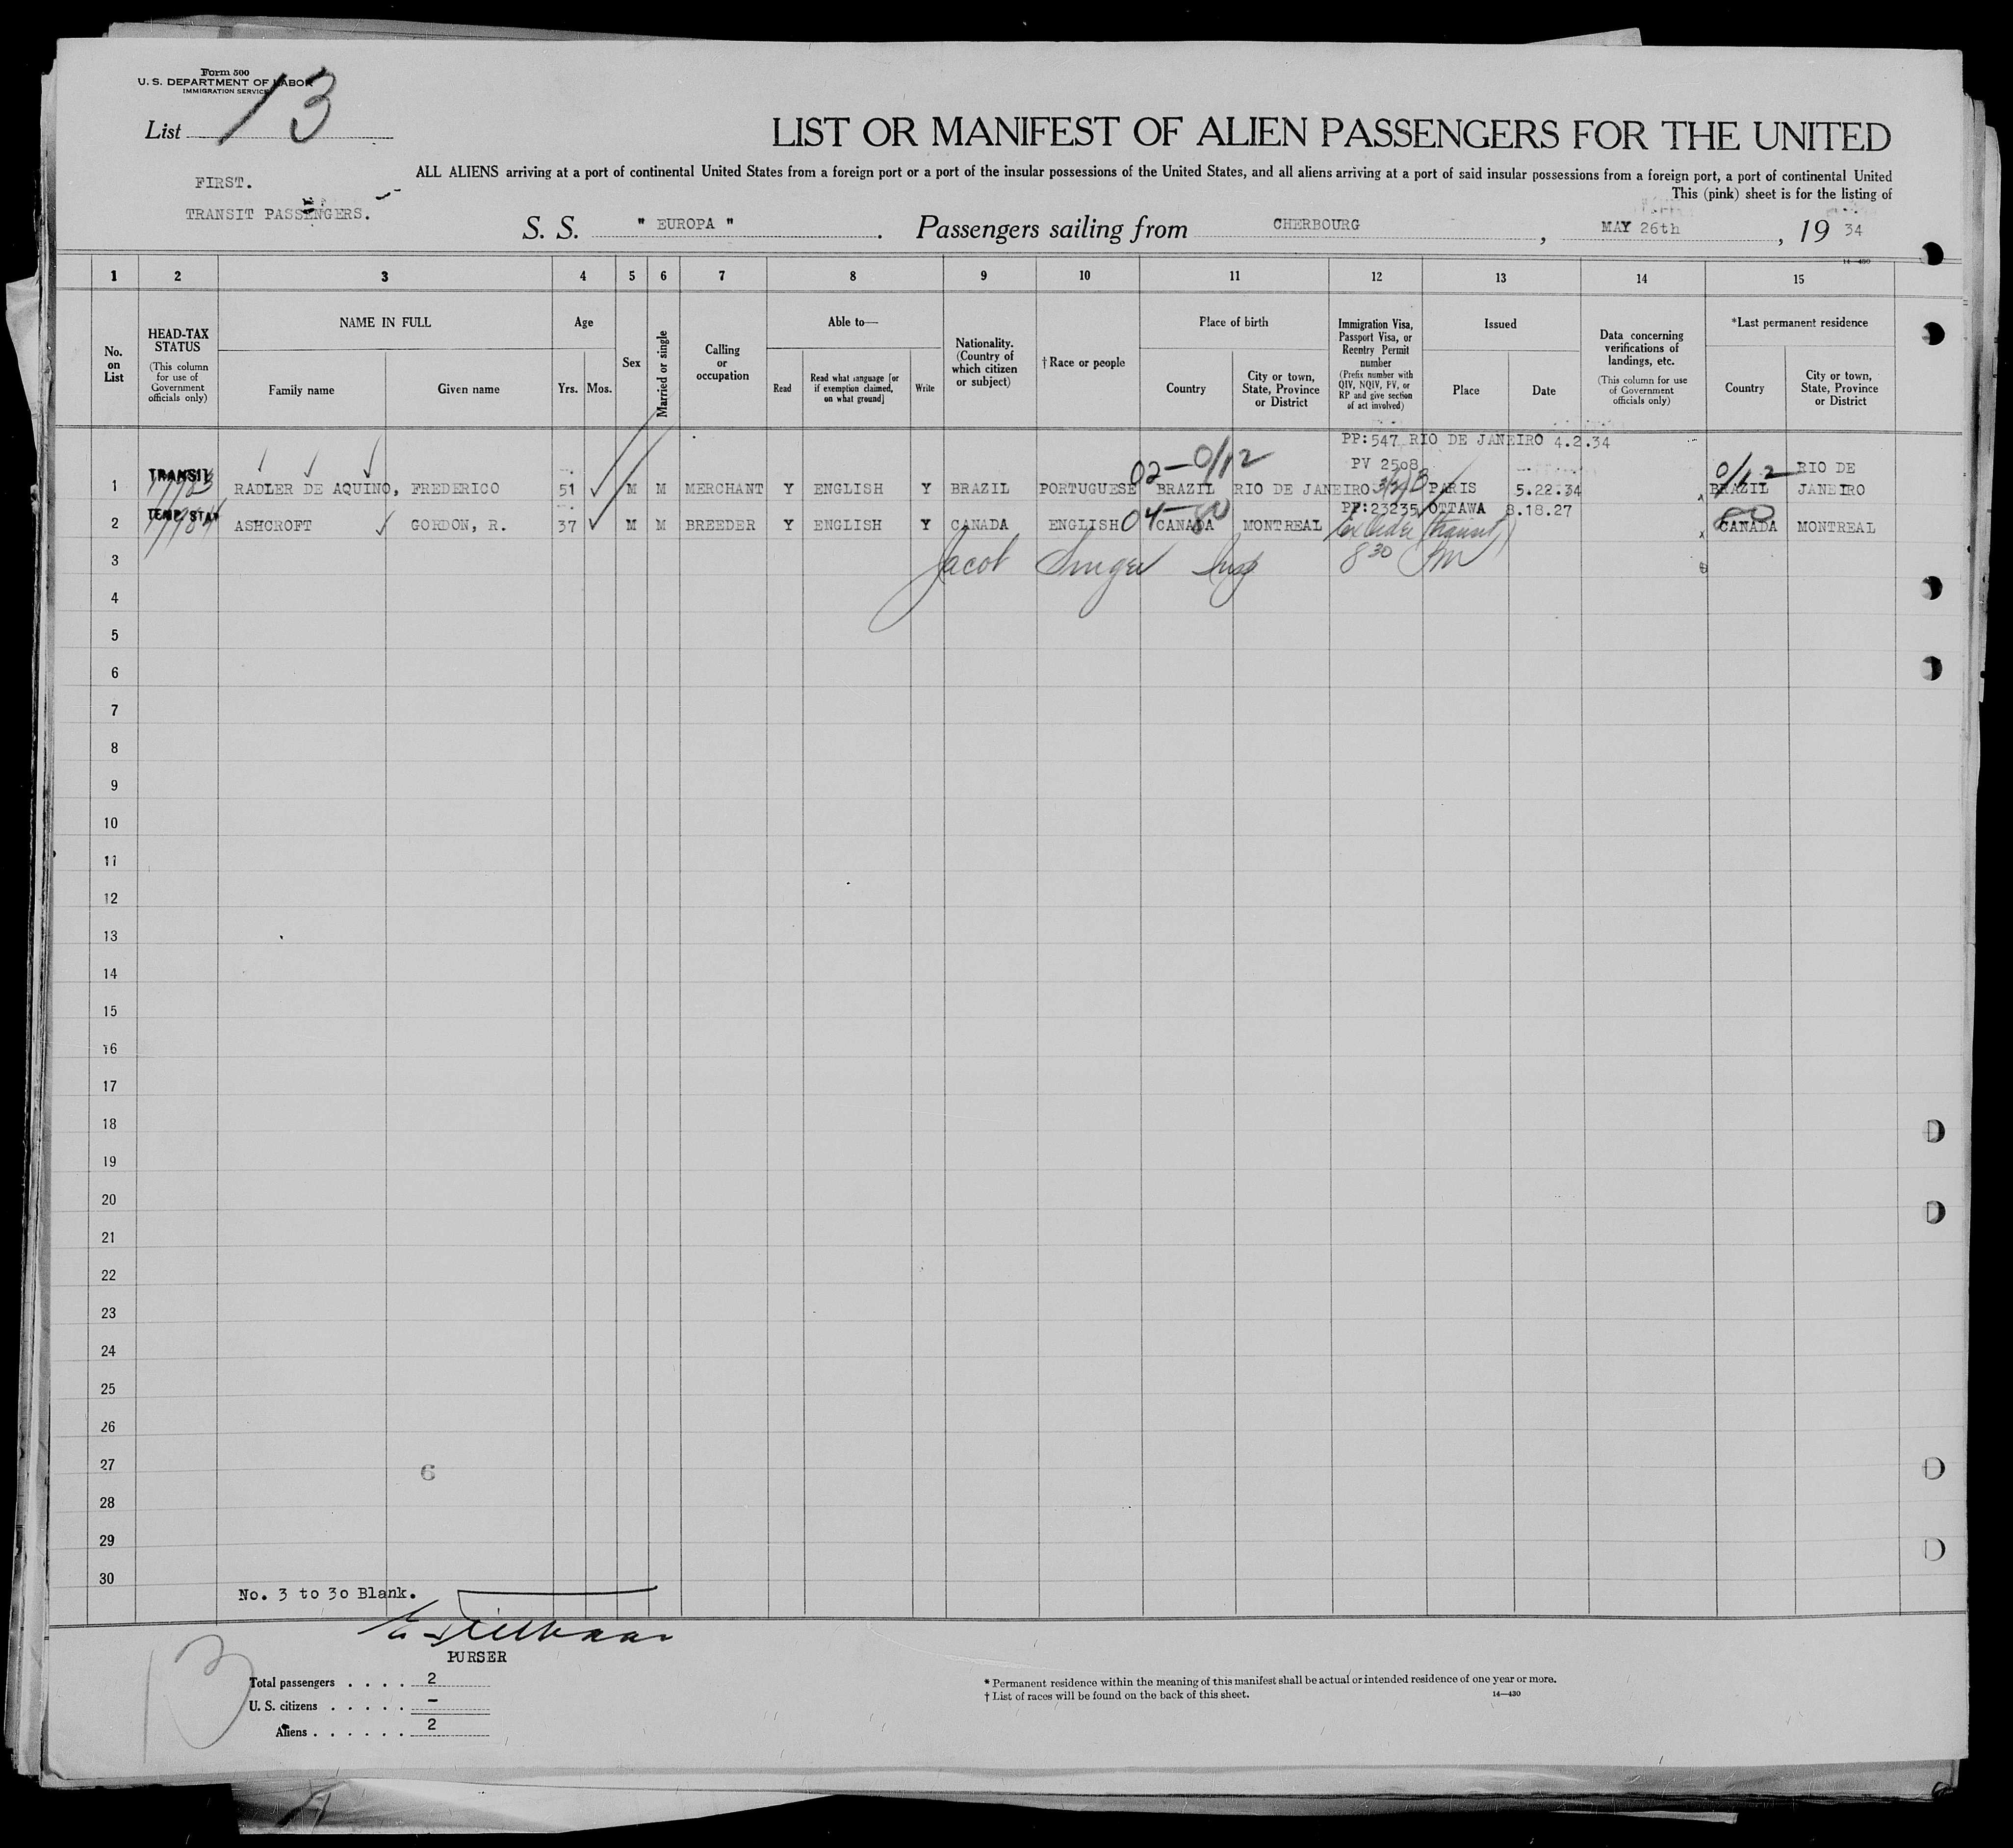 Form 500
U. S. DEPARTMENT OF LABOR
IMMIGRATION SERVICE
List 13
LIST OR MANIFEST OF ALIEN PASSENGERS FOR THE UNITED
ALL ALIENS arriving at a port of continental United States from a foreign port or a port of the insular possessions of the United States, and all aliens arriving at a port of said insular possessions from a foreign port, a port of continental United
This (pink) sheet is for the listing of
FIRST.
TRANSIT PASSENGERS.
S. S. " EUROPA ". Passengers sailing from CHERBOURG, MAY 26th, 19 34
14—430
1 2 3 4 5 6 7 8 9 10 11 12 13 14 15
No. on List
HEAD-TAX STATUS
(This column for use of Government officials only)
NAME IN FULL
Family name
Given name
Age
Yrs. Mos.
Sex
Married or single
Calling or occupation
Able to—
Read
Read what language [or if exemption claimed, on what ground]
Write
Nationality. (Country of which citizen or subject)
† Race or people
Place of birth
Country
City or town, State, Province or District
Immigration Visa, Passport Visa, or Reentry Permit number
(Prefix number with QIV, NQIV, PV, or RP and give section of act involved)
Issued
Place
Date
Data concerning verifications of landings, etc.
(This column for use of Government officials only)
*Last permanent residence
Country
City or town, State, Province or District
PP:547 RIO DE JANEIRO 4.2.34
02-0/12 PV 2508 0/12 RIO DE
TRANSIT
1 RADLER DE AQUINO, FREDERICO 51 M M MERCHANT Y ENGLISH Y BRAZIL PORTUGUESE BRAZIL RIO DE JANEIRO 3/2/3 PARIS 5.22.34 BRAZIL JANEIRO
TEMP STAY PP:23235 OTTAWA 8.18.27
2 ASHCROFT GORDON, R. 37 M M BREEDER Y ENGLISH Y CANADA ENGLISH 04-80 CANADA MONTREAL 80 CANADA MONTREAL
(transit)
3 Jacob Singer Insp 8 30
4
5
6
7
8
9
10
11
12
13
14
15
16
17
18
19
20
21
22
23
24
25
26
27 6
28
29
30
No. 3 to 30 Blank.
PURSER
13
Total passengers . . . . 2
U. S. citizens . . . . . —
Aliens . . . . . . 2
* Permanent residence within the meaning of this manifest shall be actual or intended residence of one year or more.
† List of races will be found on the back of this sheet. 14—430